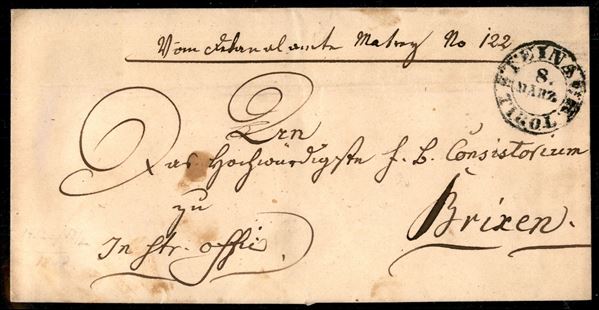 Vom Dekanalamte Matrey No 122
STEINACH
8.
MÄRZ
TIROL
An
Das Hochwürdigste f. B. Consistorium
zu
Brixen.
In Str. offic.